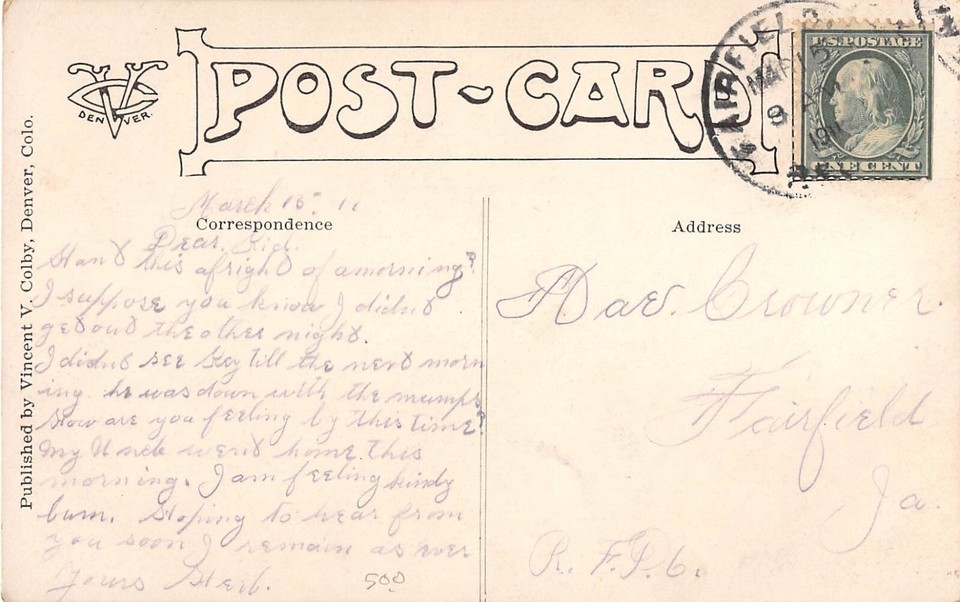 Published by Vincent V. Colby, Denver, Colo.
DENVER.
POST-CARD
FAIRFIELD
MAR 15
9 AM
1911
U.S. POSTAGE
ONE CENT
March 15. 11
Correspondence
Dear Kid.
this a fright of a morning?
I suppose you know I didnt
get out the other night.
I didnt see till the next morn
ing. he was down with the mumps
How are you feeling by this time?
My Uncle went home this
morning. I am feeling kindy
bum. Hoping to hear from
you soon I remain as ever
Yours Herb.
500
Address
Crowner.
Fairfield
Ia.
R. F. D. 6.